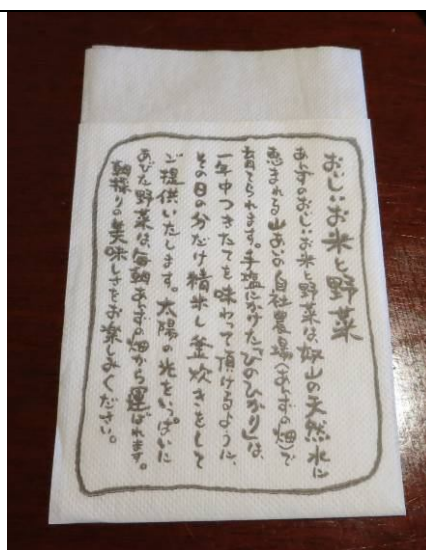 おいしいお米と野菜
あらずのおいしいお米と野菜は、奴山の天然水に
恵まれる山あいの自社農場(あらずの畑)で
育てられます。手塩にかけた「ひのひかり」は、
一年中つきたてを味わって頂けるように、
その日の分だけ精米し釜炊きをして
ご提供いたします。太陽の光をいっぱいに
あびた野菜は、毎朝あらずの畑から運ばれます。
朝採りの美味しさをお楽しみください。